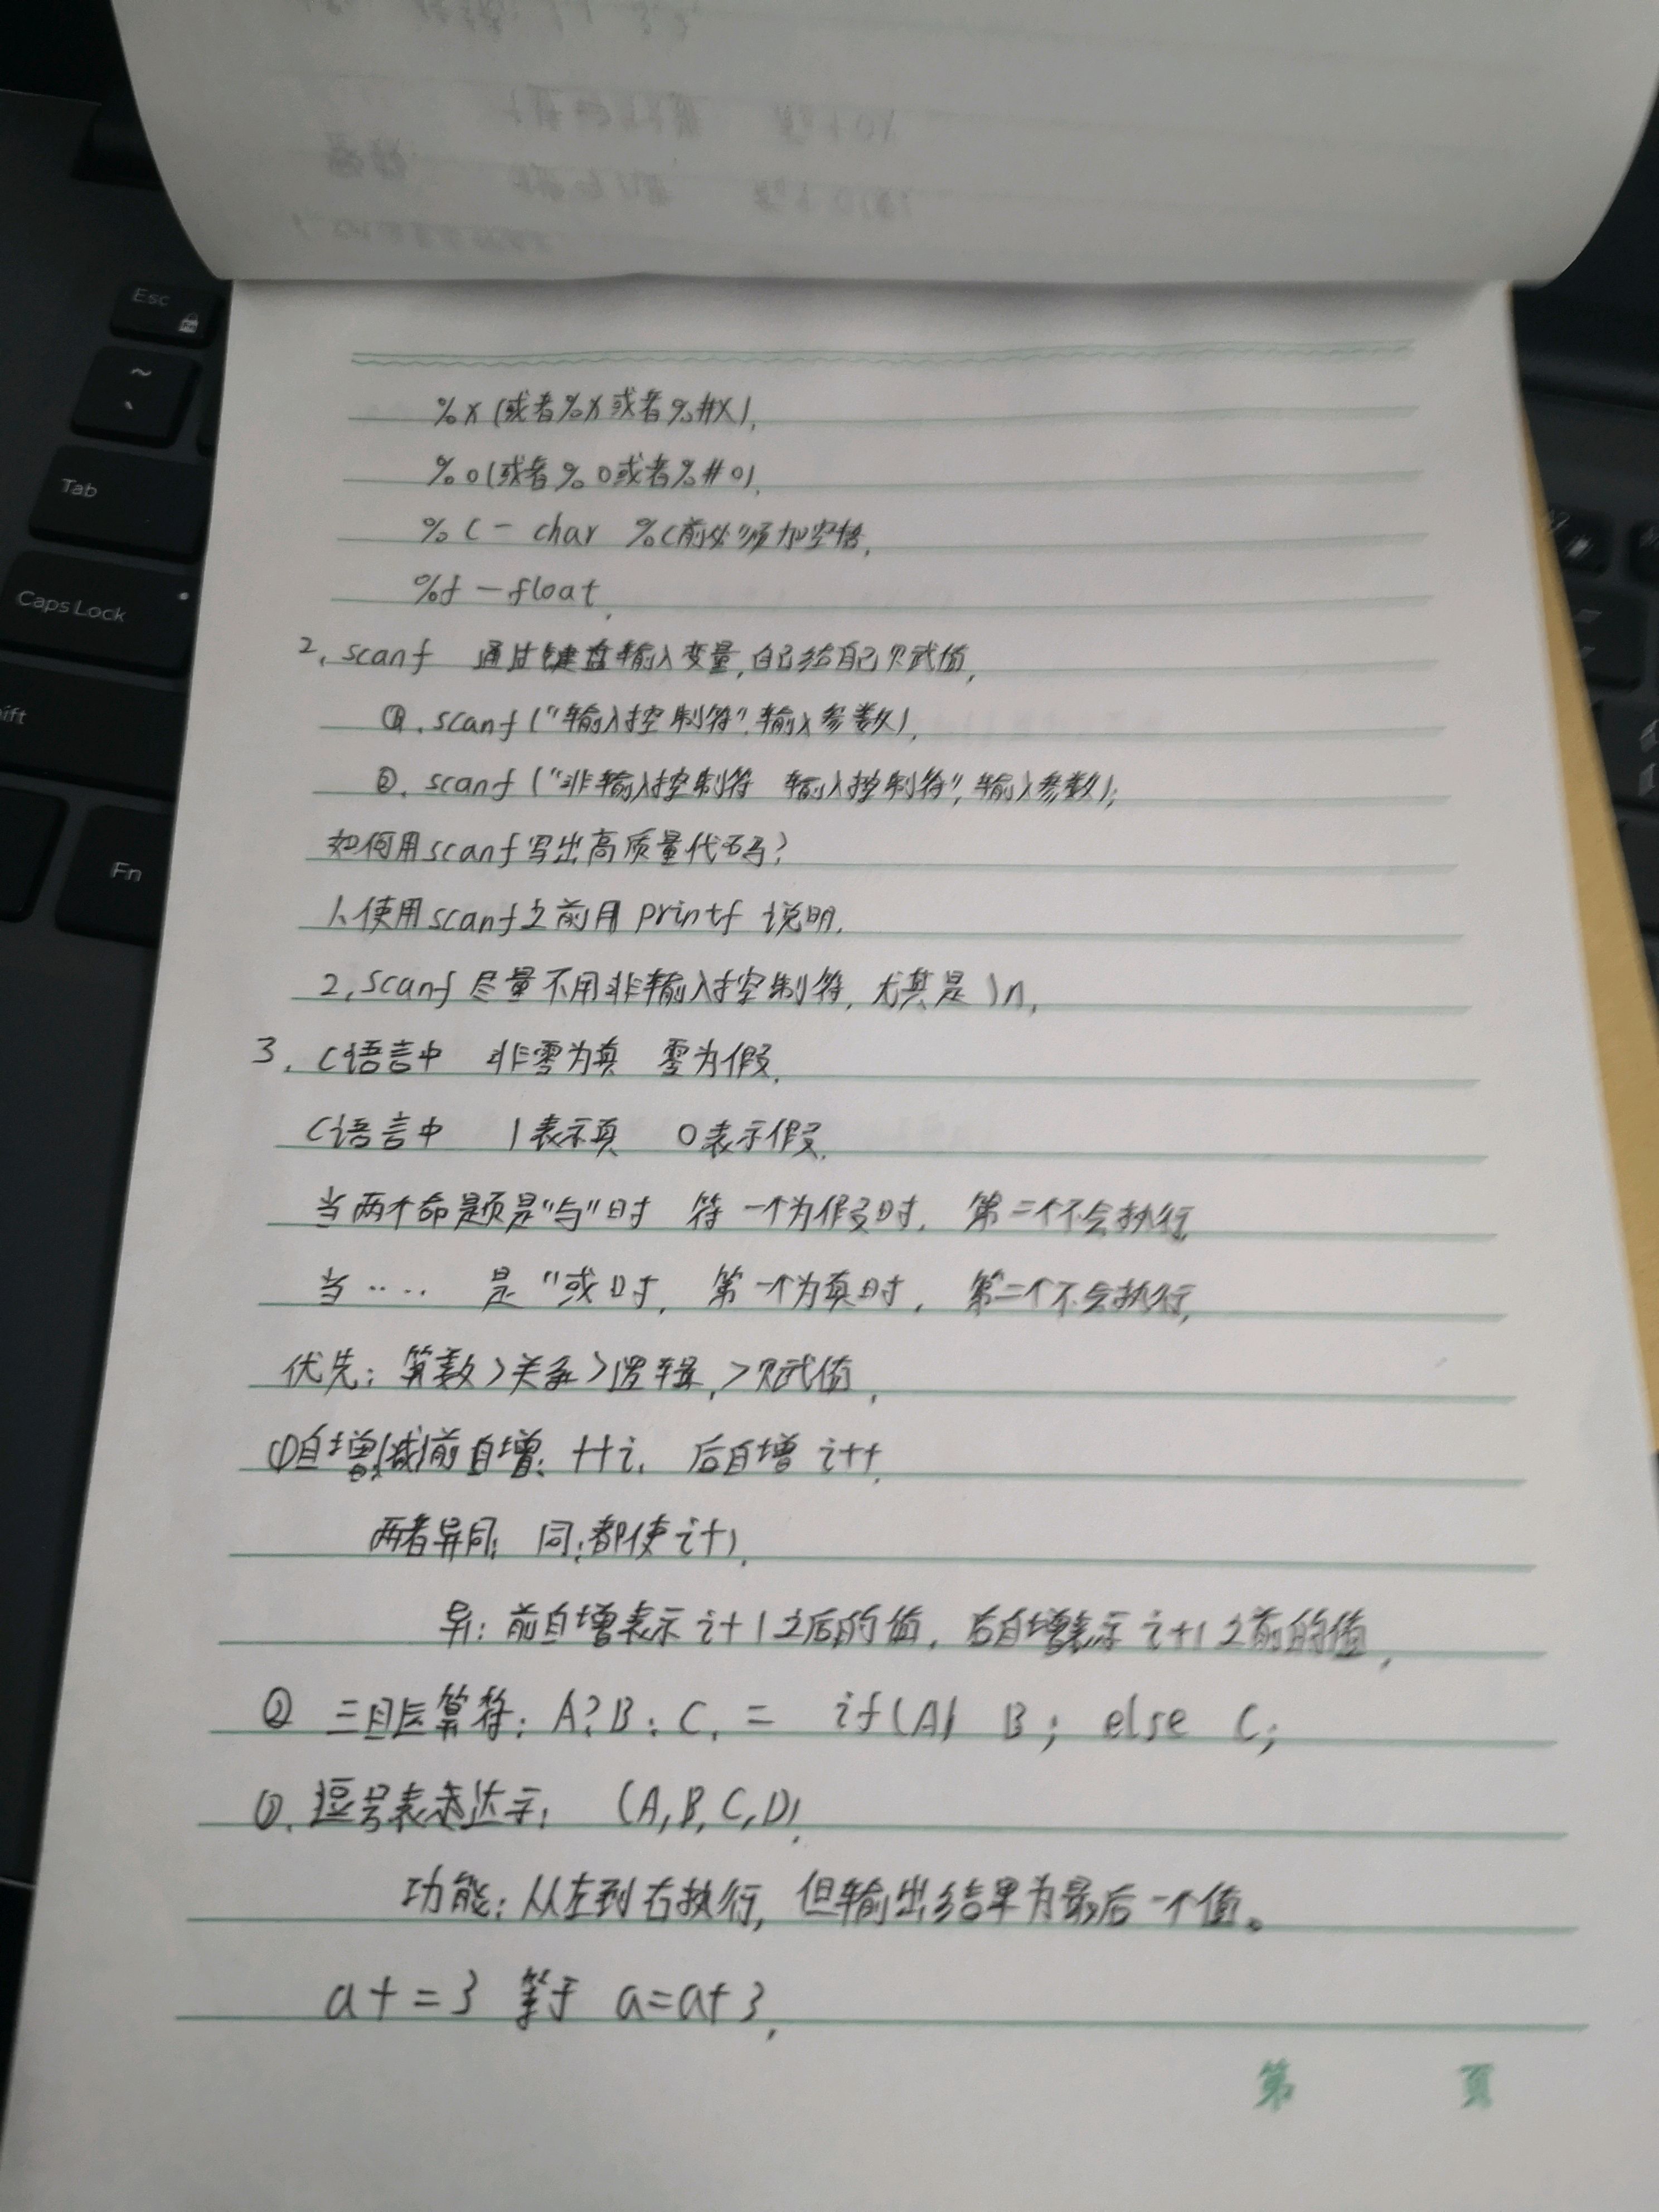 Esc
~
、
Tab
Caps Lock
ift
Fn
%x(或者%X或者%#X).
%o(或者%0或者%#o).
%c - char %c前必须加空格.
%f - float.
2. scanf 通过键盘输入变量,自己给自己赋值.
①. scanf("输入控制符".输入参数).
②. scanf("非输入控制符 输入控制符",输入参数);
如何用scanf写出高质量代码?
1.使用scanf之前用printf 说明.
2.scanf尽量不用非输入控制符,尤其是\n.
3. C语言中 非零为真 零为假.
C语言中 1表示真 0表示假.
当两个命题是"与"时 符一个为假时, 第二个不会执行.
当‥‥ 是"或时, 第一个为真时, 第二个不会执行.
优先: 算数>关系>逻辑,>赋值.
①自增(减)前自增: ++i, 后自增 i++.
两者异同: 同:都使i+1.
异: 前自增表示i+1之后的值, 后自增表示i+1之前的值.
② 三目运算符: A?B:C, = if(A) B; else C;
③. 逗号表达示: (A,B,C,D).
功能: 从左到右执行, 但输出结果为最后一个值。
a+=3 等于 a=a+3,
第 页